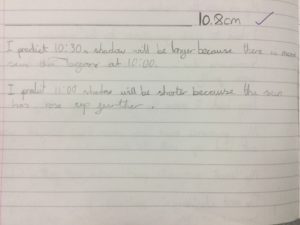 10.8cm
I predict 10:30 shadow will be longer because there is more
at 10:00.
I predict 11:00 shadow will be shorter because the sun
has rose up further.